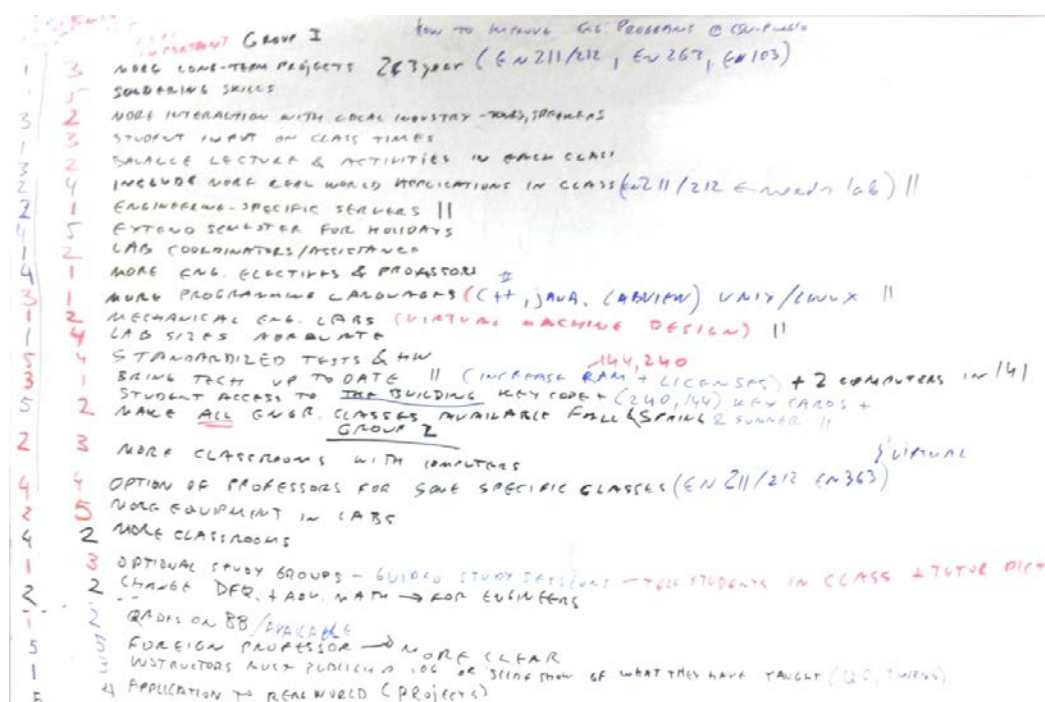 HOW TO IMPROVE ENG PROGRAMS @ CSU-Pueblo
IMPORTANT GROUP I
1 3 MORE LONG-TERM PROJECTS 2&3 year (EN 211/212, EN 263, EN 103)
5 SOLDERING SKILLS
3 2 MORE INTERACTION WITH LOCAL INDUSTRY - TOURS, SPEAKERS
1 3 STUDENT INPUT ON CLASS TIMES
3 2 BALANCE LECTURE & ACTIVITIES IN EACH CLASS
2 4 INCLUDE MORE REAL WORLD APPLICATIONS IN CLASS (EN 211/212 ← needs lab) ||
2 1 ENGINEERING-SPECIFIC SERVERS ||
4 5 EXTEND SEMESTER FOR HOLIDAYS
1 2 LAB COORDINATORS/ASSISTANCE
4 1 MORE ENG. ELECTIVES & PROFESSORS
3 1 MORE PROGRAMMING LANGUAGES (C++, JAVA, LABVIEW) UNIX/LINUX ||
1 2 MECHANICAL ENG. LABS (VIRTUAL MACHINE DESIGN) ||
1 4 LAB SIZES ADEQUATE
5 4 STANDARDIZED TESTS & HW
144, 240
3 1 BRING TECH UP TO DATE || (INCREASE RAM + LICENSES) + 2 COMPUTERS IN 141
5 STUDENT ACCESS TO THE BUILDING KEY CODE + (240, 144) KEY CARDS +
2 MAKE ALL ENGR. CLASSES AVAILABLE FALL & SPRING & SUMMER ||
GROUP 2
2 3 MORE CLASSROOMS WITH COMPUTERS
VIRTUAL
4 4 OPTION OF PROFESSORS FOR SOME SPECIFIC CLASSES (EN 211/212 EN 363)
2 5 MORE EQUIPMENT IN LABS
4 2 MORE CLASSROOMS
1 3 OPTIONAL STUDY GROUPS - GUIDED STUDY SESSIONS - TELL STUDENTS IN CLASS + TUTOR
2 2 CHANGE DEQ. + ADV. MATH → FOR ENGINEERS
1 2 GRADES ON BB/AVAILABLE
5 5 FOREIGN PROFESSOR → MORE CLEAR
1 3 INSTRUCTORS MUST PUBLISH A LOG OR SLIDE SHOW OF WHAT THEY HAVE TAUGHT
5 4 APPLICATION TO REAL WORLD (PROJECTS)